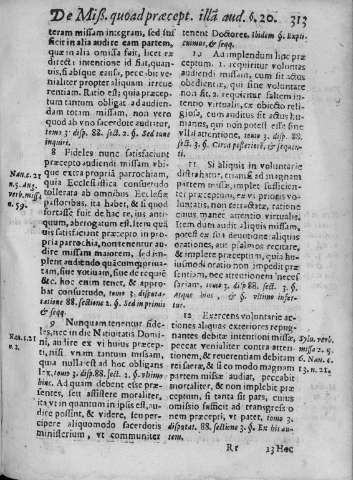 De Miß. quoad præcept. illā aud. §. 20. 313
teram missam integram, sed suf
ficit in alia audire eam partem,
quæ in alia omissa fuit, licet ex
directa intentione id fiat, quam-
uis, si absque causa, peccabit ve-
nialiter propter aliquam irreue
rentiam. Ratio est; quia præcep-
tum tantum obligat ad audien-
dam totam missam, non vero
quod ab vno sacerdote auditur,
tomo 3. disp. 88. sect. 2. §. Sed iane
inquire.
8 Fideles nunc satisfaciunt
præcepto audiendi missam vbi-
que extra propriā parrochiam,
quia Ecclesiastica consuetudo
tollerata ab omnibus Ecclesiæ
pastoribus, ita habet, & si quod
fortasse fuit de hac re, ius anti-
quum, abrogatum est. Item quā
uis satisfaciant præcepto in pro
pria parrochia, non tenentur au-
dire missam maiorem, sed im-
plent audiendo quācumque priua-
tam, siue votiuam, siue de requiē
&c. hoc enim tenet, & appro-
bat consuetudo, tomo 3. disputa-
tatione 88. sectione 2. §. Sed in primis
& seqq.
Nau. c. 21
n. 5. Ang.
verb. missa
n. 59.
9 Nunquam tenentur fide-
les, nec in die Natiuitatis Domi
ni, audire ex vi huius præcep-
tu, nisi vnam tantum missam,
quia nulla est ad hoc obligans
lex, tomo 3. disp. 88. sect. 2. §. vltimo
hinc. Ad quam debent esse præ-
sentes, seu assistere moraliter,
ita vt quantum in ipsis est, au-
dire possint, & videre, seu per-
cipere aliquomodo sacerdotis
ministerium, vt communiter
Nau. c. 21
n. 2.
tenent Doctores. Ibidem §. Expli-
cauimus, & seqq.
10 Ad implendum hoc præ
ceptum. 1. requiritur voluntas
audiendi missam, cum sit actus
obedientiæ, qui non potest nō
esse volitus. 2. requiritur saltem in-
tentio virtualis, ex obiecto reli-
giosa, cum auditus sit actus hu-
manus, qui non potest esse sine
vlla attentione, tomo 3. disp. 88.
sect. 3. §. Circa posterius, & sequen-
ti.
11 Si aliquis in voluntarie
distrahatur, etiam si ad magnam
partem missæ, implet sufficien-
ter præceptum, quia ex priori
voluntate, non retractata, ratione
cuius manet attentio virtualis.
Item dum audit aliquis missam,
potest ex sua deuotione aliquas
orationes, aut psalmos recitare,
& implere præceptum, quia hu-
iusmodi oratio non impedit præ
sentiam, nec attentionem neces-
sariam, tomo 3. disp. 88. sect. 3. §.
Atque hinc, & §. vltimo infer-
tur.
12 Exercens voluntarie ac-
tiones aliquas exteriores repug-
nantes debitæ intentioni missæ,
peccat venialiter contra atten-
tionem, & reuerentiam debitam
rei sacræ, & si eo modo magnam
partem missæ audiat, peccabit
mortaliter, & non implebit præ
ceptum, si tanta sit pars, cuius
omissio sufficit ad transgressio
nem præcepti, vt constat tomo 3.
disputat. 88. sectione 3. §. Ex his au-
tem.
Sylu. verb.
missa 2. q.
6. Nau. c.
13. n. 21.
Rr 13 Hoc